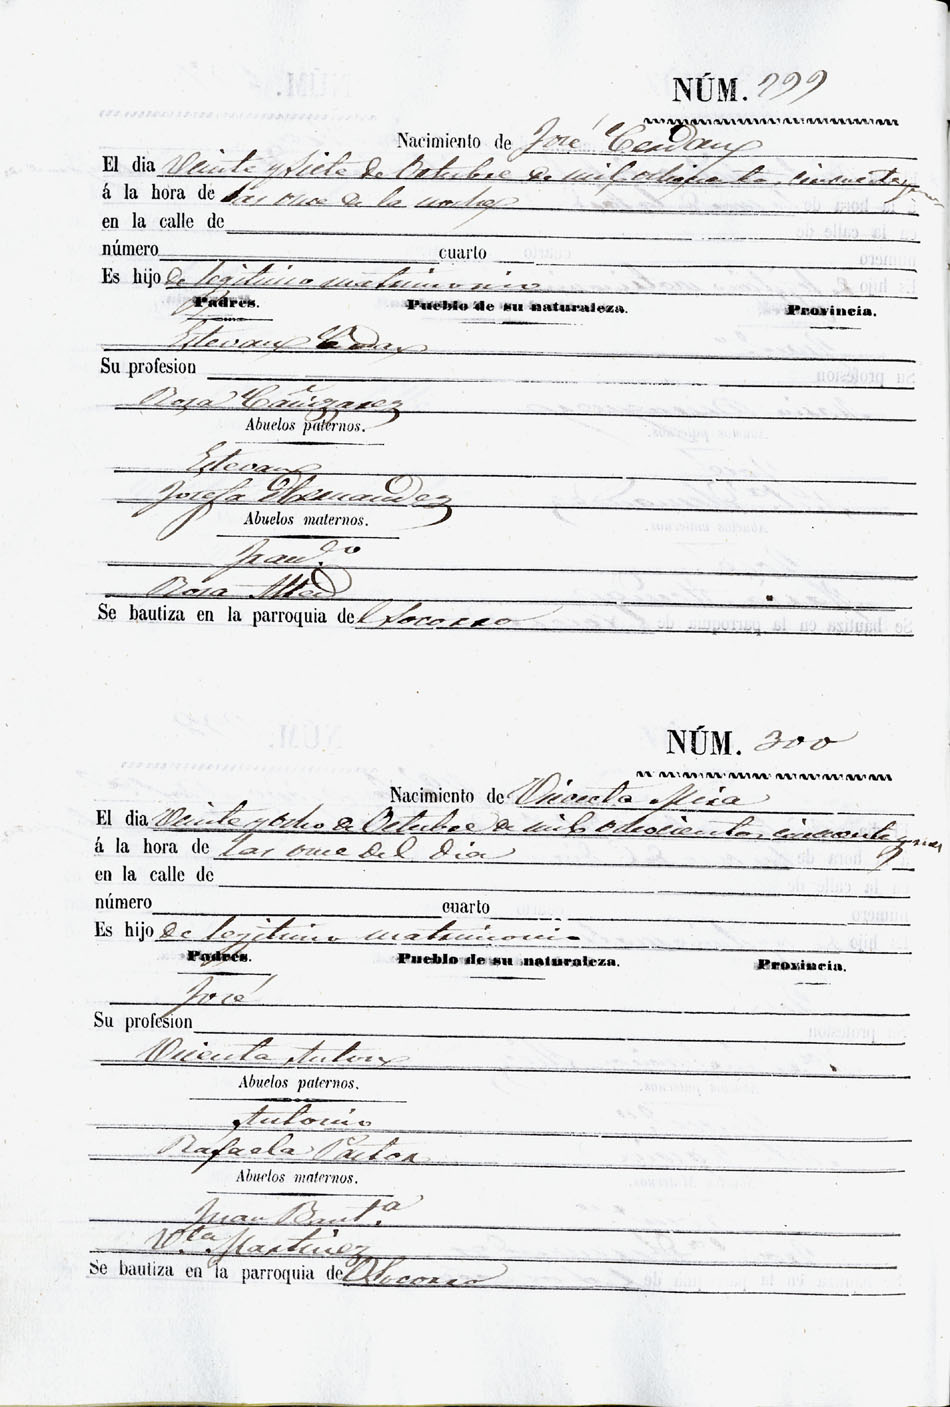 NÚM. 299
Nacimiento de José Cerdan
El dia Veinte y siete de Octubre de mil ochocientos cincuenta y
á la hora de las once de la noche
en la calle de
número cuarto
Es hijo de legitimo matrimonio
Padres. Pueblo de su naturaleza. Provincia.
Estevan Cerdan
Su profesion
Rosa Cañizarez
Abuelos paternos.
Estevan
Josefa Hernandez
Abuelos maternos.
Fran.co
Rosa Alted
Se bautiza en la parroquia del Socorro
NÚM. 300
Nacimiento de Vicenta Mira
El dia Veinte y ocho de Octubre de mil ochocientos cincuenta y
á la hora de las once del dia
en la calle de
número cuarto
Es hijo de legitimo matrimonio
Padres. Pueblo de su naturaleza. Provincia.
José
Su profesion
Vicenta Anton
Abuelos paternos.
Antonio
Rafaela Pastor
Abuelos maternos.
Juan Baut.a
V.ta Martinez
Se bautiza en la parroquia del Socorro